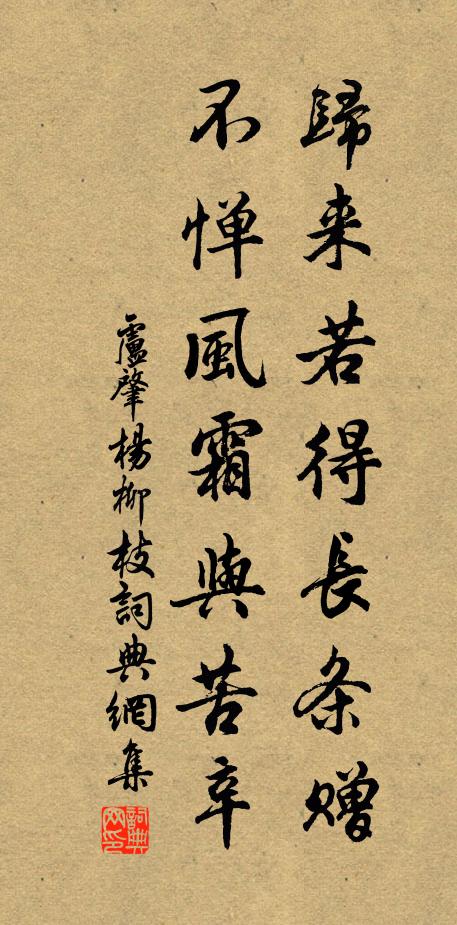 歸来若得長条贈
不惮風霜與苦辛
盧肇楊柳枝詞典網集
詞典网印